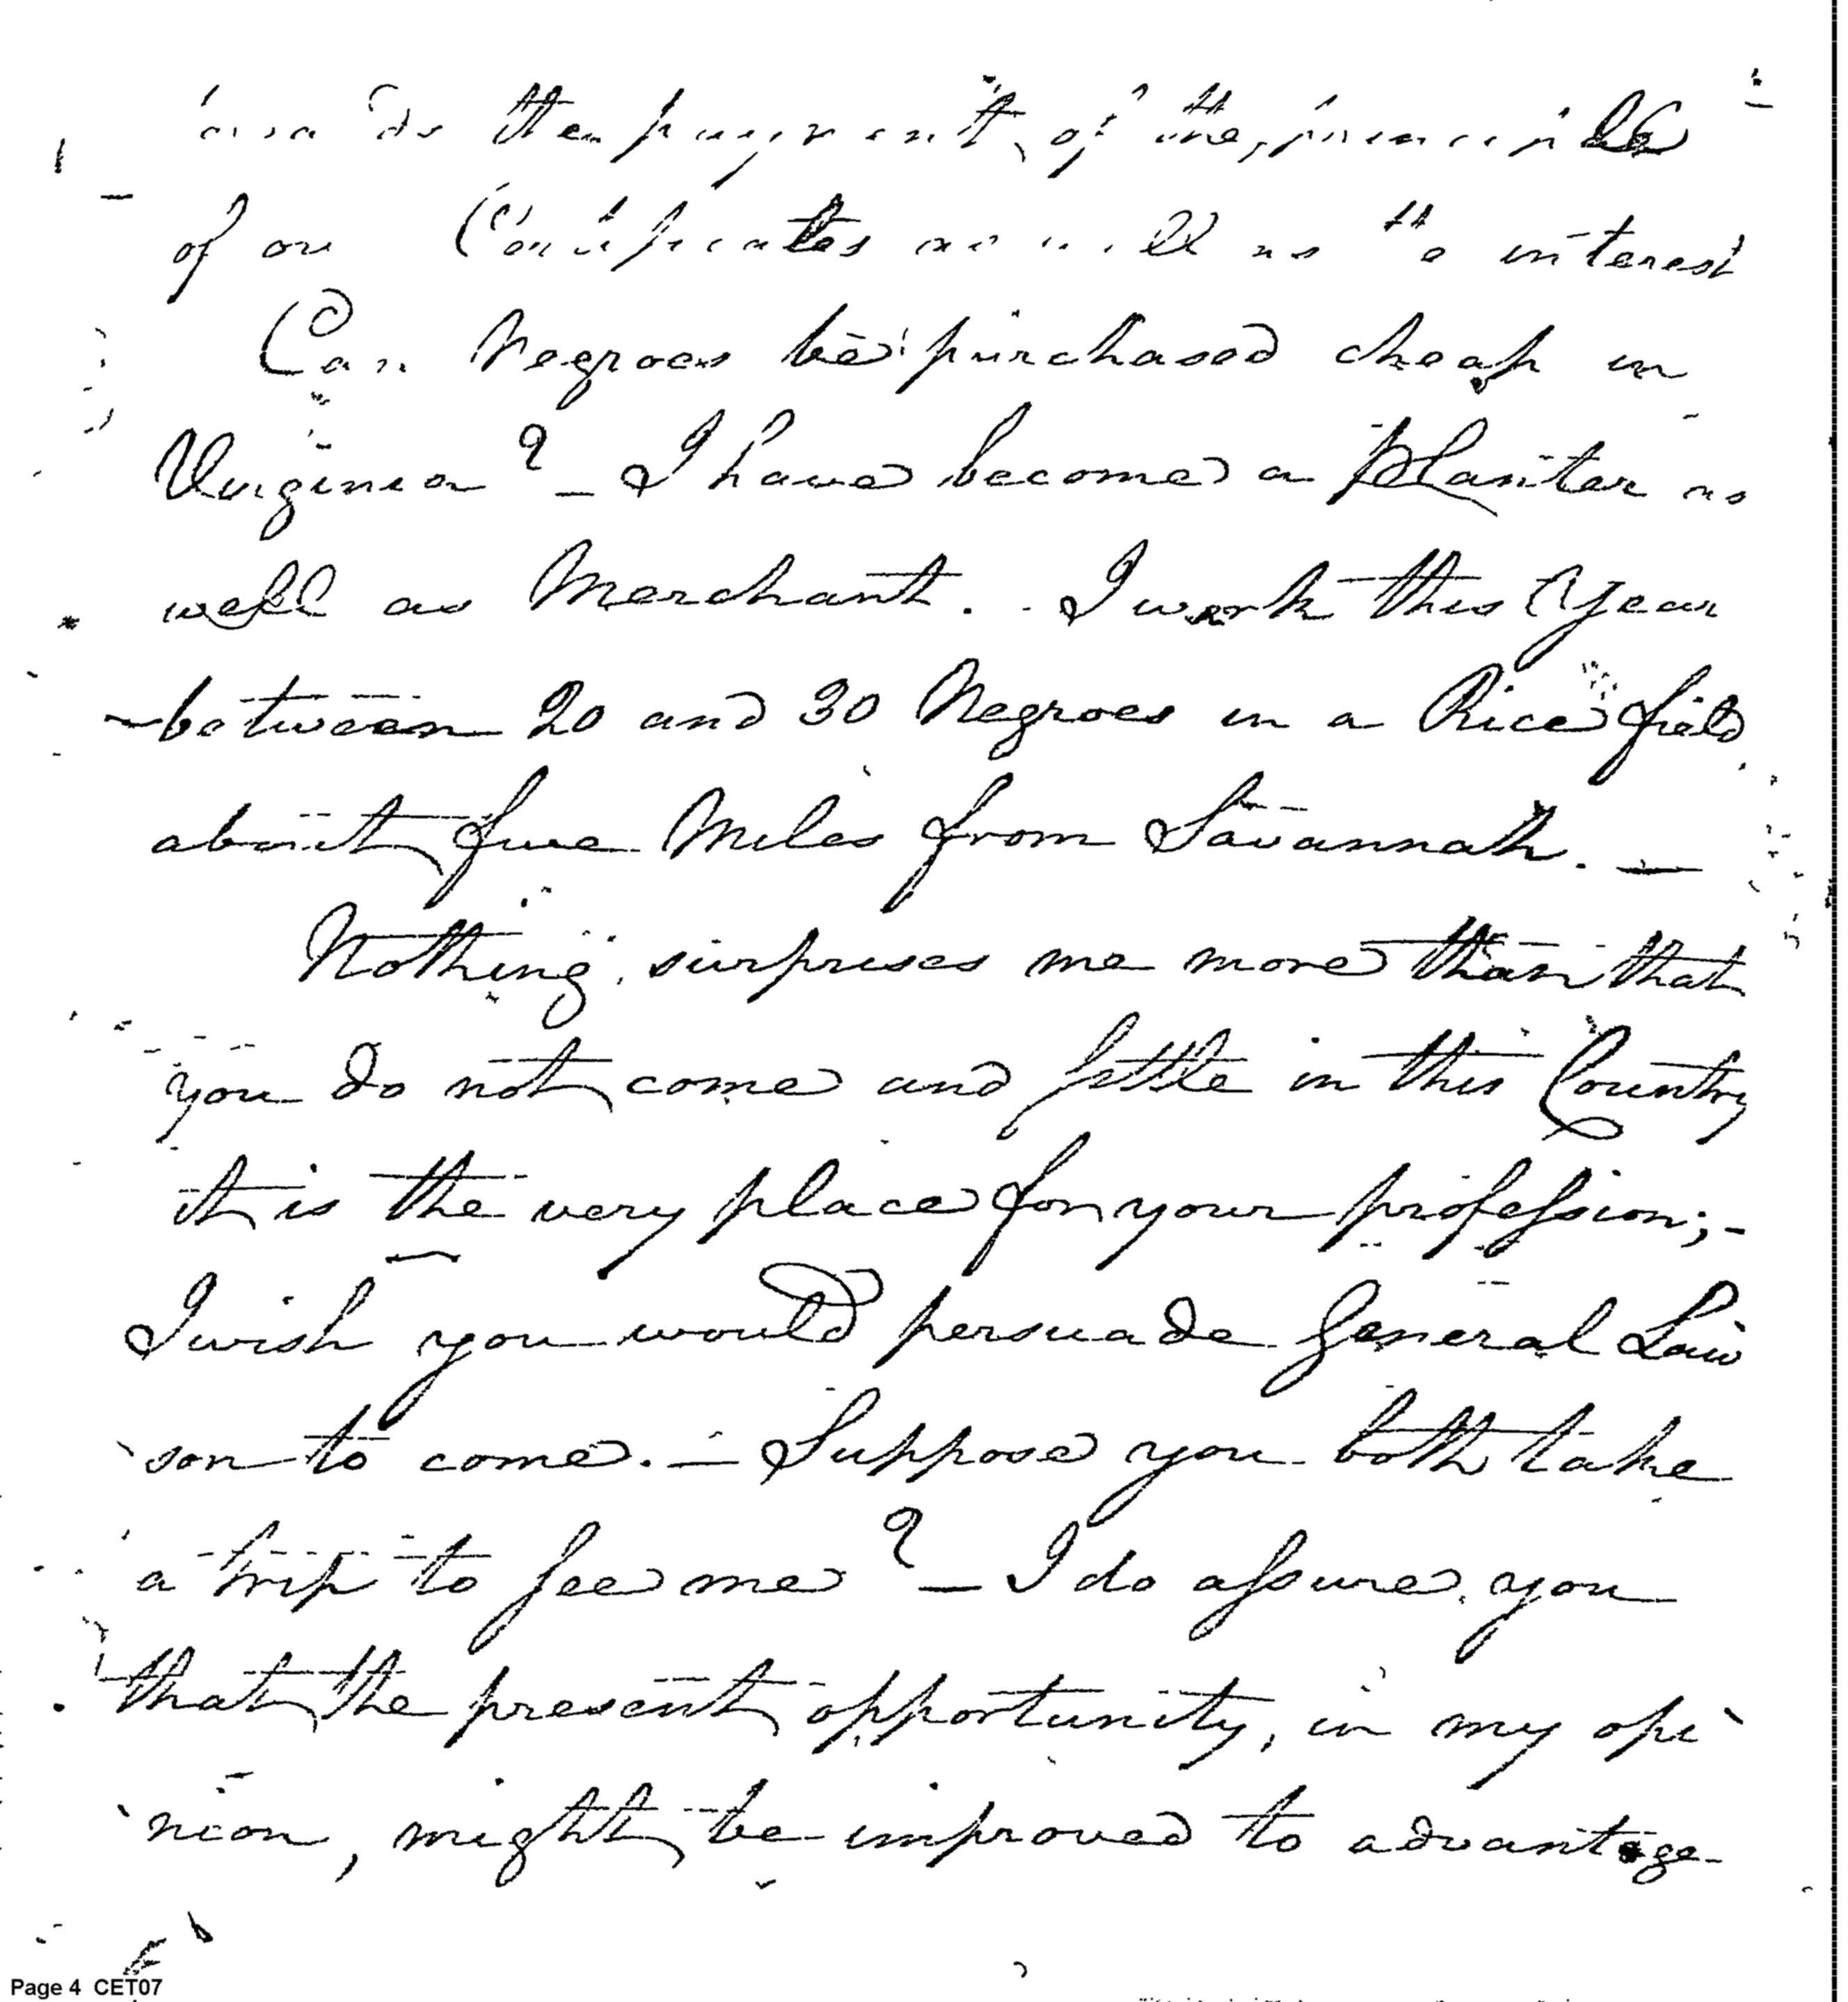 the payment of the principle
of our Certificates as well as the interest
Can Negroes be purchased cheap in
Virginia? – I have become a Planter as
well as Merchant. . I work this Year
between 20 and 30 Negroes in a Rice field
about five Miles from Savannah. —
Nothing surprises me more than that
you do not come and settle in this Country
it is the very place for your profession; –
I wish you would persuade General Law
son to come. – Suppose you both take
a trip to see me? – I do assure you
that the present opportunity, in my opi
nion, might be improved to advantage
Page 4 CET07